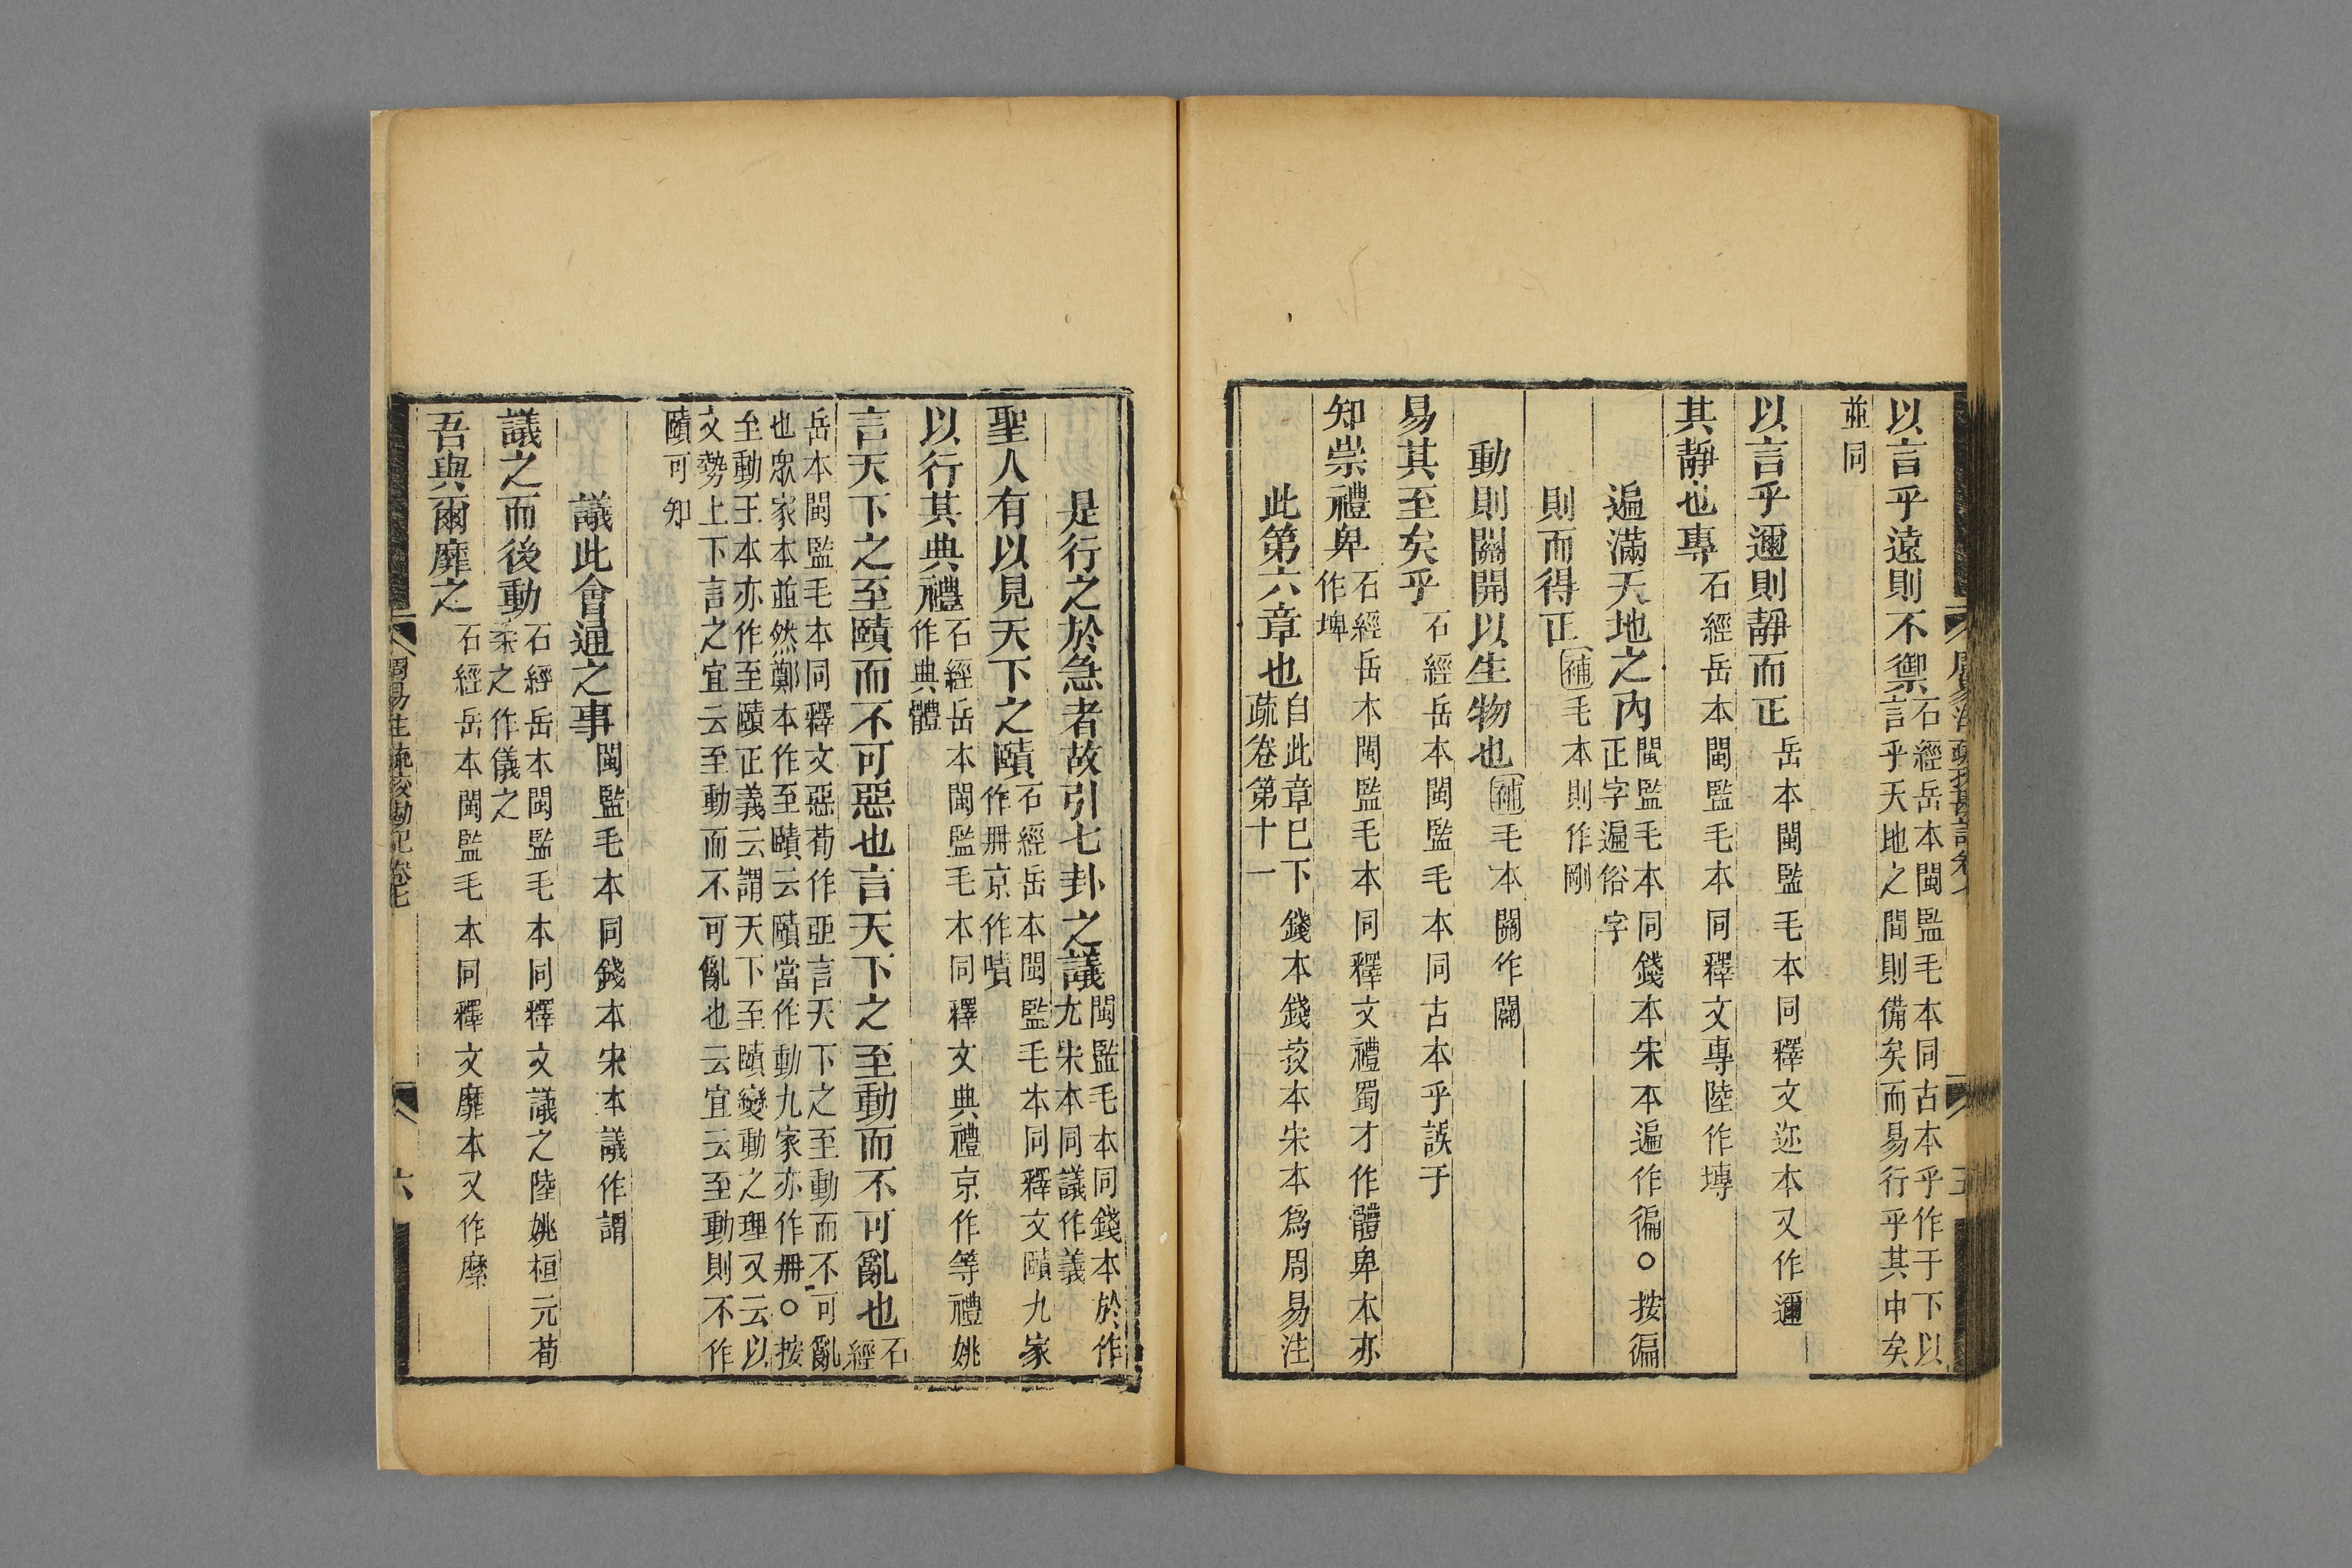 以言乎遠則不禦石經岳本閩監毛本同古本乎作于下以
言乎天地之間則備矣而易行乎其中矣
並同
以言乎邇則靜而正岳本閩監毛本同釋文迩本又作邇
其靜也專石經岳本閩監毛本同釋文專陸作塼
遍滿天地之內閩監毛本同錢本宋本遍作徧○按徧
正字遍俗字
則而得正補毛本則作剛
動則關開以生物也補毛本關作闢
易其至矣乎石經岳本閩監毛本同古本乎誤于
知崇禮卑石經岳本閩監毛本同釋文禮蜀才作體卑本亦
作埤
此第六章也自此章已下錢本錢挍本宋本爲周易注
疏卷第十一
周易注疏挍勘記卷七
五
是行之於急者故引七卦之議閩監毛本同錢本於作
尤宋本同議作義
聖人有以見天下之賾石經岳本閩監毛本同釋文賾九家
作冊京作嘖
以行其典禮石經岳本閩監毛本同釋文典禮京作等禮姚
作典體
言天下之至賾而不可惡也言天下之至動而不可亂也石
經
岳本閩監毛本同釋文惡荀作亞言天下之至動而不可亂
也眾家本並然鄭本作至賾云賾當作動九家亦作冊○按
至動王本亦作至賾正義云謂天下至賾變動之理又云以
文勢上下言之宜云至動而不可亂也云宜云至動則不作
賾可知
議此會通之事閩監毛本同錢本宋本議作謂
議之而後動石經岳本閩監毛本同釋文議之陸姚桓元荀
柔之作儀之
吾與爾靡之石經岳本閩監毛本同釋文靡本又作縻
周易注疏挍勘記卷七
六